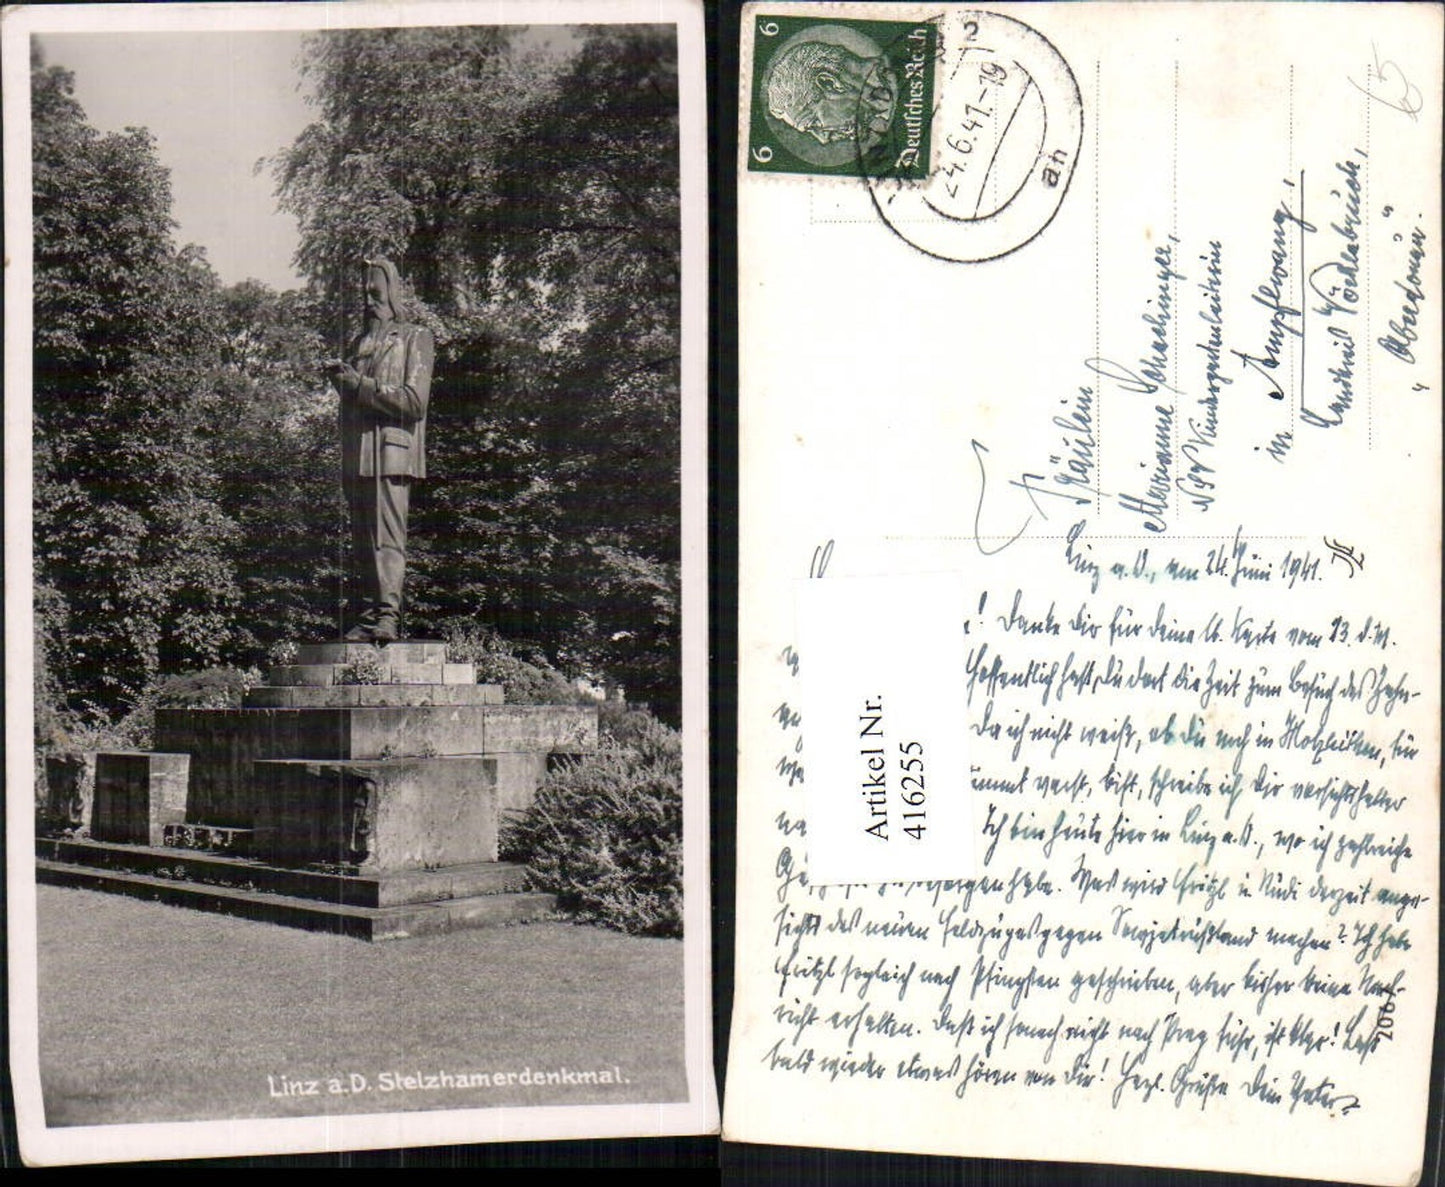 Linz a.D. Stelzhamerdenkmal.
6
6
Deutsches Reich
2
24.6.41.-19
an
65
Fräulein
Marianne
NSV Kindergartenleiterin
in Ampflwang,
Landkreis Vöcklabruck,
"Oberdonau".
Linz a. D., am 24. Juni 1941.
! Danke Dir für deine lb. Karte vom 23. d. M.
Hoffentlich hast Du dort die Zeit zum Besuch des Zahn-
Da ich nicht weiß, ob Du noch in für
bist, schreibe ich Dir vorsichtshalber
Ich bin heute hier in Linz a. D., wo ich zahlreiche
habe. Was wird Fritzl u. Rudi derzeit ange-
sichts des neuen Feldzuges gegen Sowjetrußland machen? Ich habe
Fritzl sogleich nach Pfingsten geschrieben, aber bisher keine Nach-
richt erhalten. Daß ich sonach nicht nach Prag fuhr, ist klar! Laß
bald wieder etwas hören von Dir! Herzl. Grüße Dein Vater
Artikel Nr.
416255